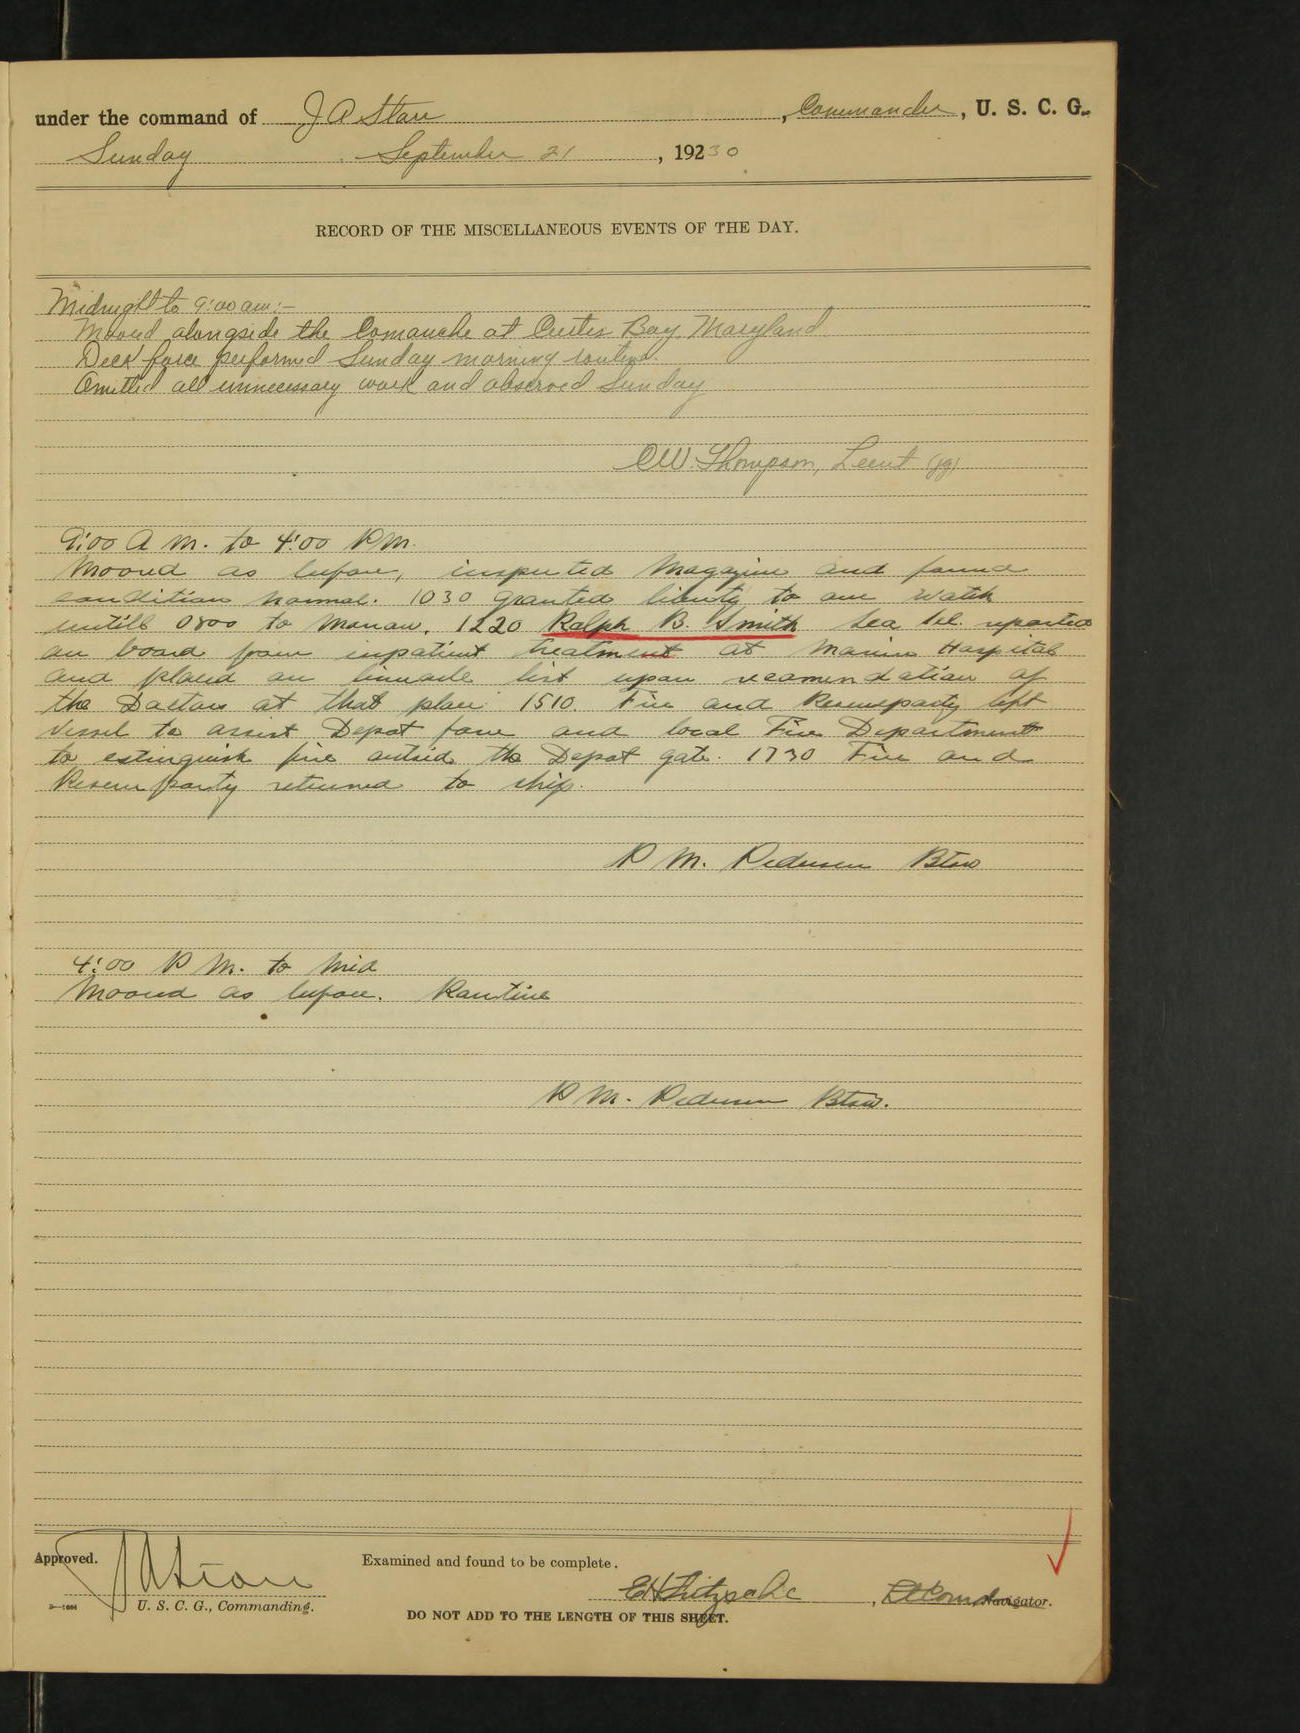 under the command of J A Starr, Commander, U. S. C. G.
Sunday September 21, 19230
RECORD OF THE MISCELLANEOUS EVENTS OF THE DAY.
Midnight to 9:00 am:-
Moored alongside the Comanche at Curtis Bay, Maryland
Deck force performed Sunday morning routine.
Omitted all unnecessary work and observed Sunday
C W. Thompson, Lieut (jg)
9:00 A M. to 4:00 P M.
Moored as before, inspected Magazine and found
condition normal. 1030 granted liberty to one watch
untill 0800 to morrow. 1220 Ralph B. Smith Sea 1cl. reported
on board from inpatient treatment at Marine Hospital
and placed on binnacle list upon recomendation of
the Doctors at that place. 1510. Fire and Rescue party left
vessel to assist Depot force and local Fire Department
to estinguish fire outside the Depot gate. 1730 Fire and
Rescue party returned to ship.
P M. Pedersen Btsw
4:00 P M. to Mid
Moored as before. Routine
P M. Pedersen Btsw.
Approved. Examined and found to be complete.
J A Starr E H Fritzsche, Lt Comdr Navigator.
U. S. C. G., Commanding.
DO NOT ADD TO THE LENGTH OF THIS SHEET.